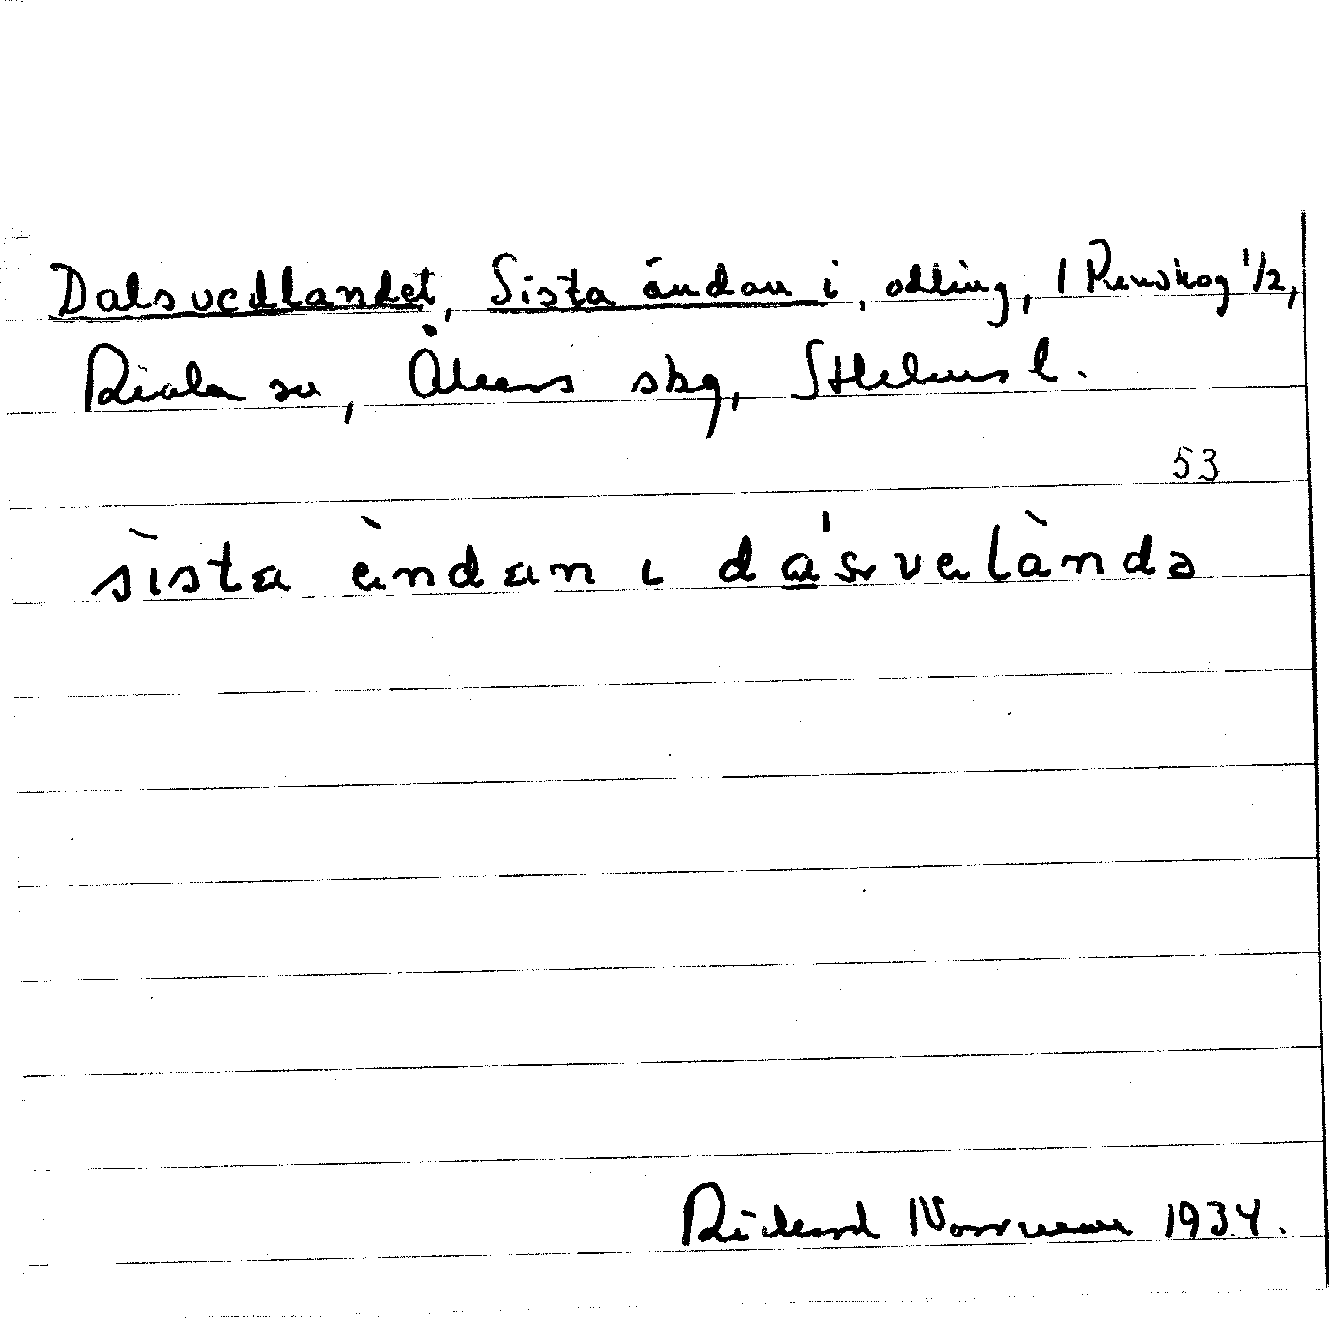 Dalsvedlandet, Sista ändan i, odling, 1 Renskog 1/2,
Riala sn, Åkers skg, Sthlms l.
53
sìsta ändan ɩ dasvelàndə
Rickard Norrman 1934.